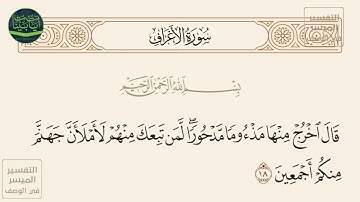 سُورَةُ الأَعْرَافِ
بِسْمِ اللَّهِ الرَّحْمَٰنِ الرَّحِيمِ
قَالَ ٱخْرُجْ مِنْهَا مَذْءُومًا مَّدْحُورًا ۖ لَّمَن تَبِعَكَ مِنْهُمْ لَأَمْلَأَنَّ جَهَنَّمَ
مِنكُمْ أَجْمَعِينَ ١٨
التفسير
الميسر
في الوصف
التفسير
الميسر
في الوصف